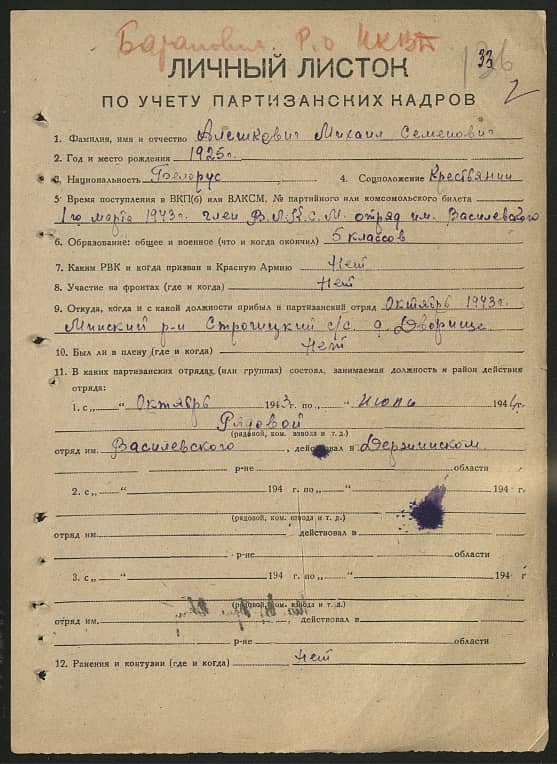 Баранович Р.о НКВД
33
ЛИЧНЫЙ ЛИСТОК
ПО УЧЕТУ ПАРТИЗАНСКИХ КАДРОВ
1. Фамилия, имя и отчество Алешкевич Михаил Семенович
2. Год и место рождения 1925г.
3. Национальность Белорус 4. Соцположение Крествянин
5. Время поступления в ВКП(б) или ВЛКСМ, № партийного или комсомольского билета
1го марта 1943г. член В.Л.К.С.М. отряд им. Василевского
6. Образование: общее и военное (что и когда окончил) 5 классов
7. Каким РВК и когда призван в Красную Армию Нет
8. Участие на фронтах (где и когда) Нет
9. Откуда, когда и с какой должности прибыл в партизанский отряд Октябрь 1943г.
Минский р-н с/с. д Дворище
10. Был ли в плену (где и когда) Нет
11. В каких партизанских отрядах (или группах) состоял, занимаемая должность и район действия
отряда:
1. с „ “ Октябрь 1943 г. по „ “ Июль 1944 г.
Рядовой
(рядовой, ком. взвода и т. д.)
отряд им. Василевского, действовал в Держинском
р-не области
2. с „ “ 194 г. по „ “ 194 г
(рядовой, ком. взвода и т. д.)
отряд им. действовал в
р-не области
3. с „ “ 194 г. по „ “ 194 г
(рядовой, ком. взвода и т. д.)
отряд им. , действовал в
р-не области
12. Ранения и контузии (где и когда) Нет